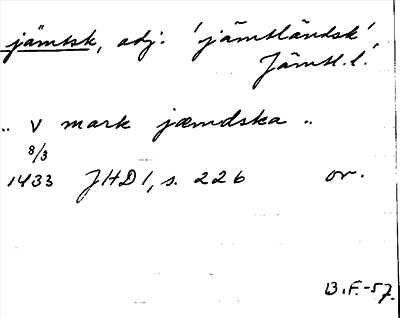 jämtsk, adj. 'jämtländsk'
Jämtl.l.
.. V mark jæmdska ..
8/3
1433 JHD 1, s. 226 or.
B.F.-57.